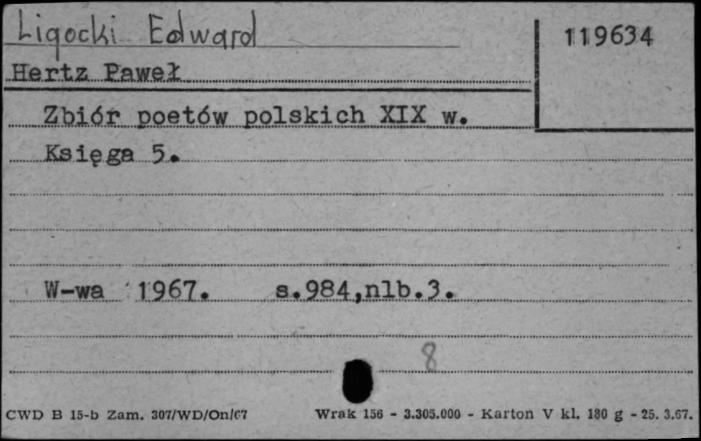 Ligocki Edward
119634
Hertz Paweł
Zbiór poetów polskich XIX w.
Księga 5.
W-wa 1967. s.984,nlb.3.
8
CWD B 15-b Zam. 307/WD/On/67 Wrak 156 - 3.305.000 - Karton V kl. 180 g - 25. 3.67.